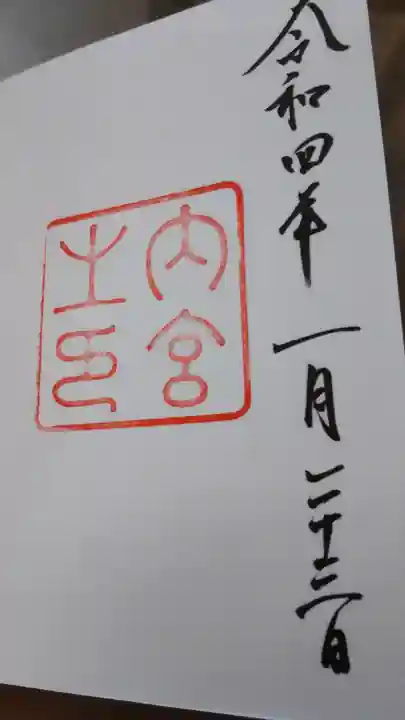 令和四年一月二十三日
内宮
之印